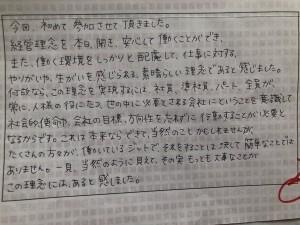 今回、初めて参加させて頂きました。
経営理念を本日、聞き、安心して働くことができ、
また、働く環境をしっかりと配慮して、仕事に対する、
やりがいや、生がいを感じられる、素晴らしい理念であると感じました。
何故なら、この理念を実現するには、社員、準社員、パート、全員が、
常に、人様の役にたち、世の中に必要とされる会社にということを意識して
社会的使命や、会社の目標、方向性を忘れずに行動することが必要と
なるからです。これは本来ならできて、当然のことかもしれませんが、
たくさんの方々が、働いているジャットで、それをすることは、決して簡単なことでは
ありません。一見、当然のように見えて、その実もっとも大事なことが
この理念には、あると感じました。